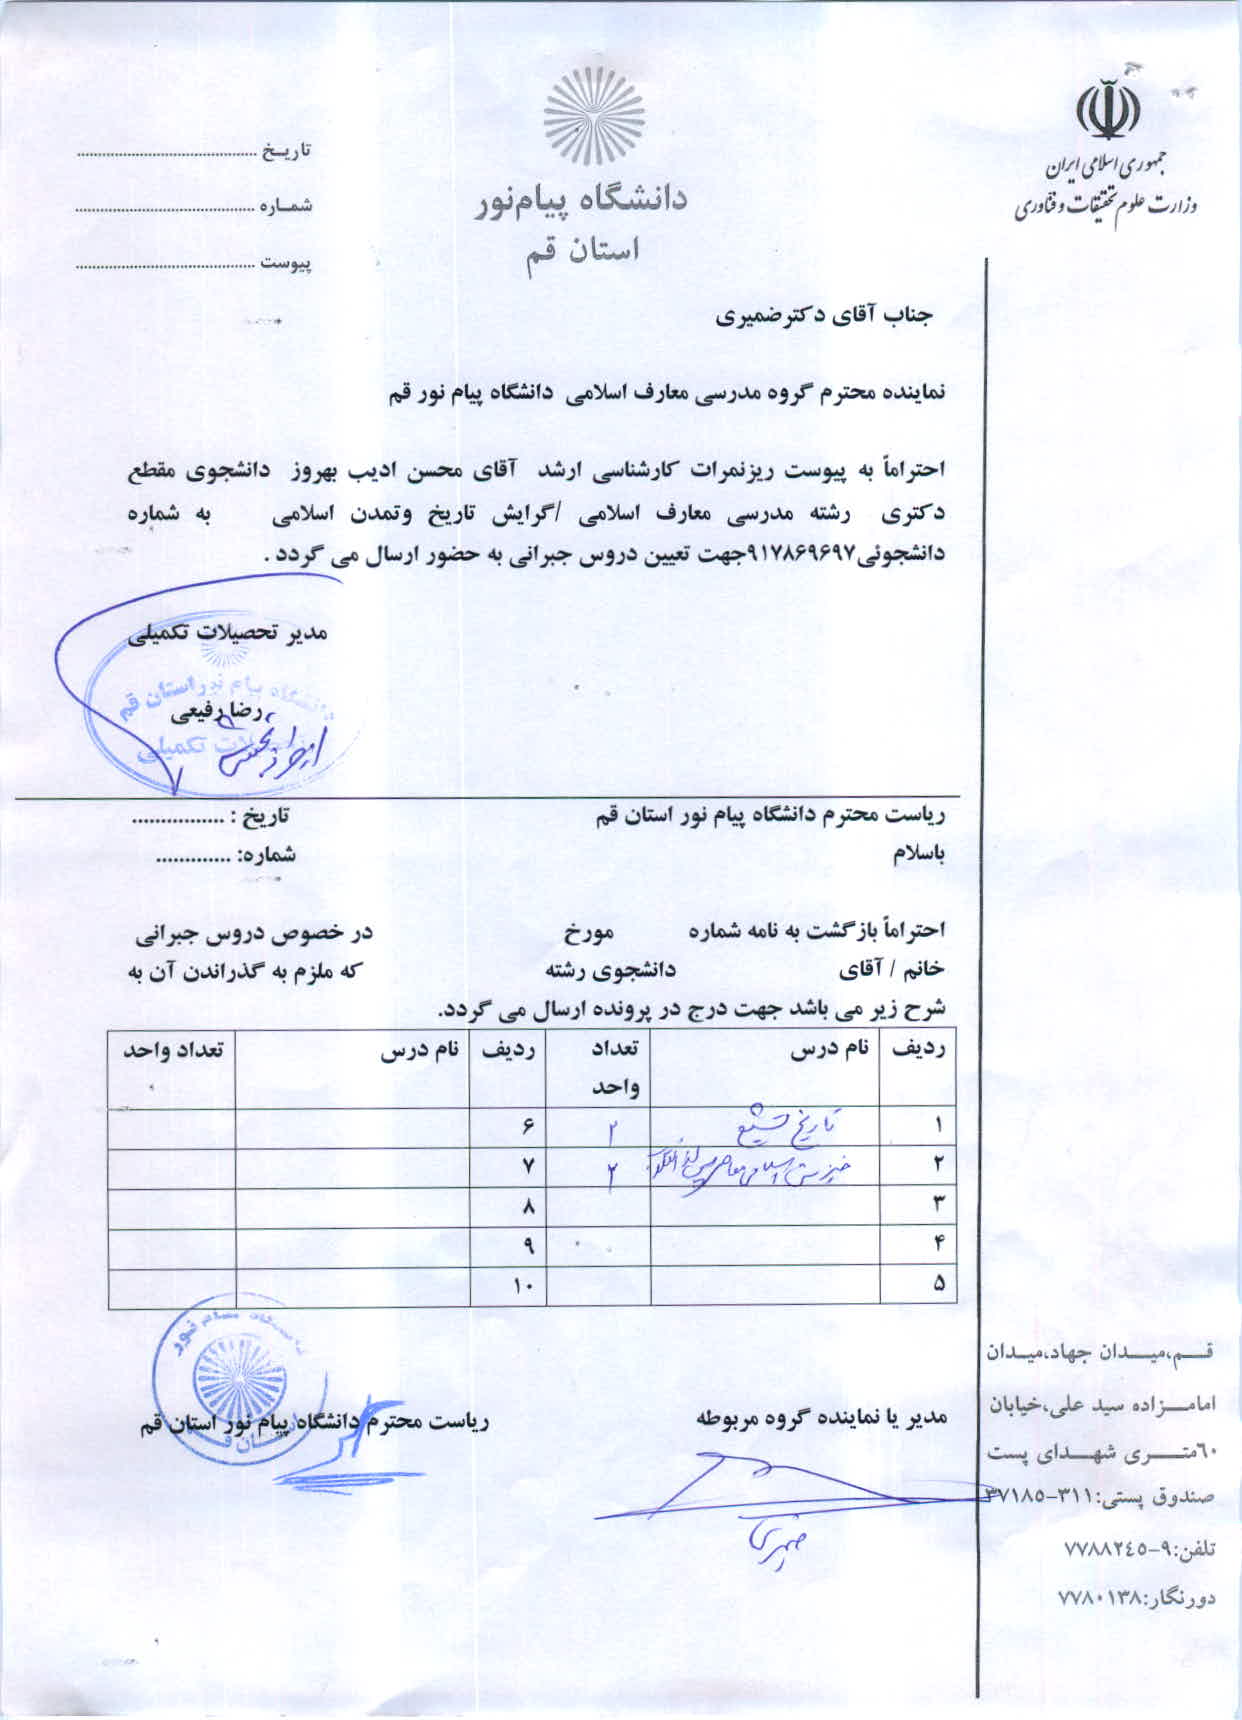 جمهوری اسلامی ایران
وزارت علوم تحقیقات و فناوری
دانشگاه پیام‌نور
استان قم
تاریـخ ......................................
شمـاره ......................................
پیوست ......................................
جناب آقای دکترضمیری
نماینده محترم گروه مدرسی معارف اسلامی دانشگاه پیام نور قم
احتراماً به پیوست ریزنمرات کارشناسی ارشد آقای محسن ادیب بهروز دانشجوی مقطع
دکتری رشته مدرسی معارف اسلامی /گرایش تاریخ وتمدن اسلامی به شماره
دانشجوئی۹۱۷۸۶۹۶۹۷جهت تعیین دروس جبرانی به حضور ارسال می گردد .
مدیر تحصیلات تکمیلی
دانشگاه پیام نور استان قم
رضا رفیعی
تحصیلات تکمیلی
ریاست محترم دانشگاه پیام نور استان قم تاریخ : ................
باسلام شماره: .............
احتراماً بازگشت به نامه شماره مورخ در خصوص دروس جبرانی
خانم / آقای دانشجوی رشته که ملزم به گذراندن آن به
شرح زیر می باشد جهت درج در پرونده ارسال می گردد.
ردیف نام درس تعداد واحد ردیف نام درس تعداد واحد
۱ تاریخ تشیع ۲ ۶
۲ ۲ ۷
۳ ۸
۴ ۹
۵ ۱۰
مدیر یا نماینده گروه مربوطه ریاست محترم دانشگاه پیام نور استان قم
ضمیری
قـــم،میـــدان جهاد،میـدان
امامـــزاده سید علی،خیابان
٦٠متـــری شهـــدای پست
صندوق پستی:۳۱۱-۳۷۱۸۵
تلفن:۹-۷۷۸۸۲٤۵
دورنگار:۷۷۸۰۱۳۸